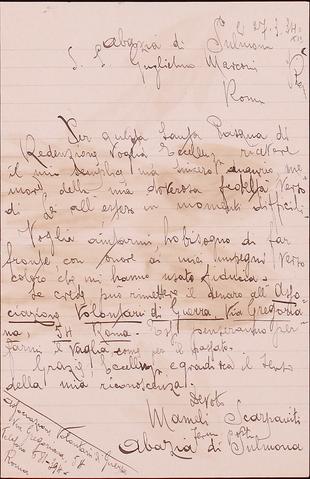 Abazia di Sulmona li 27-3-34-
S. E. Guglielmo Marconi
Roma
Per questa Santa Pasqua di
Redenzione voglia Eccellenza ricevere
il mio semplice ma sincero augurio me
more della mia doverosa fedeltà verso
di Lei all'estero in momenti difficili.
Voglia aiutarmi ho bisogno di far
fronte con onore ai miei impegni verso
coloro che mi hanno usato fiducia.
Se crede può rimettere il denaro all'Asso
ciazione Volontari di Guerra Via Gregoria
na 54 Roma. penseranno per
farmi il vaglia come per il passato.
Grazie Eccellenza e gradisca il senso
della mia riconoscenza.
Devoto
Mameli Scarpariti
Ferm Posta
Abazia di Sulmona
Associazione Volontari di Guerra
Via Gregoriana, 54
Roma